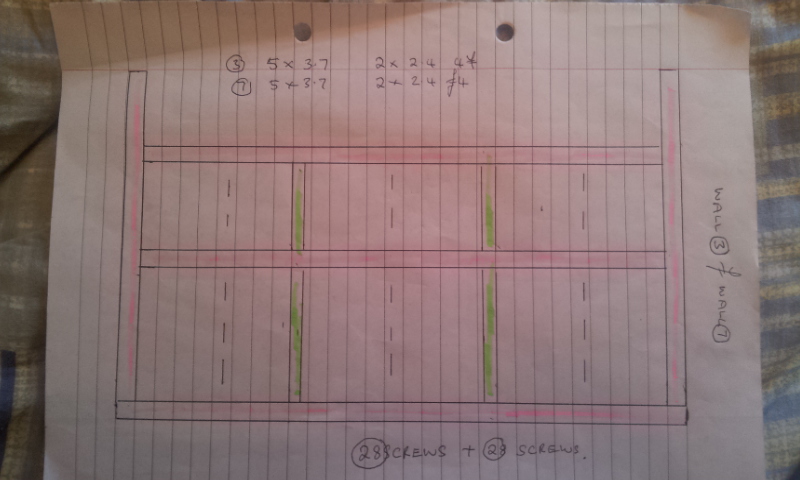 ③ 5 × 3.7 2 × 2.4 4
⑦ 5 × 3.7 2 × 2.4 4
WALL ③ & WALL ⑦
28 SCREWS + 28 SCREWS.